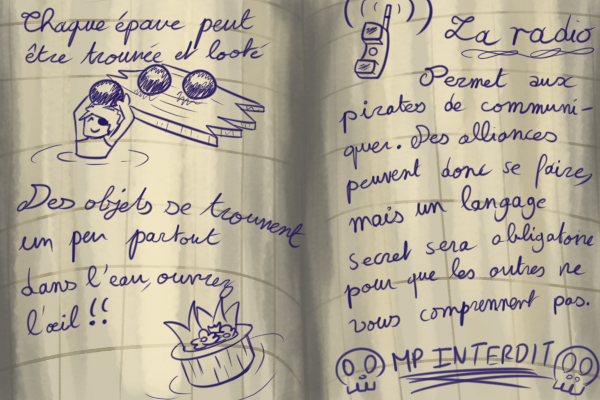 Chaque épave peut
être trouvée et looté
Des objets se trouvent
un peu partout
dans l'eau, ouvrez
l'œil !!
La radio
Permet aux
pirates de communi-
quer. Des alliances
peuvent donc se faire,
mais un langage
secret sera obligatoire
pour que les autres ne
vous comprennent pas.
MP INTERDIT